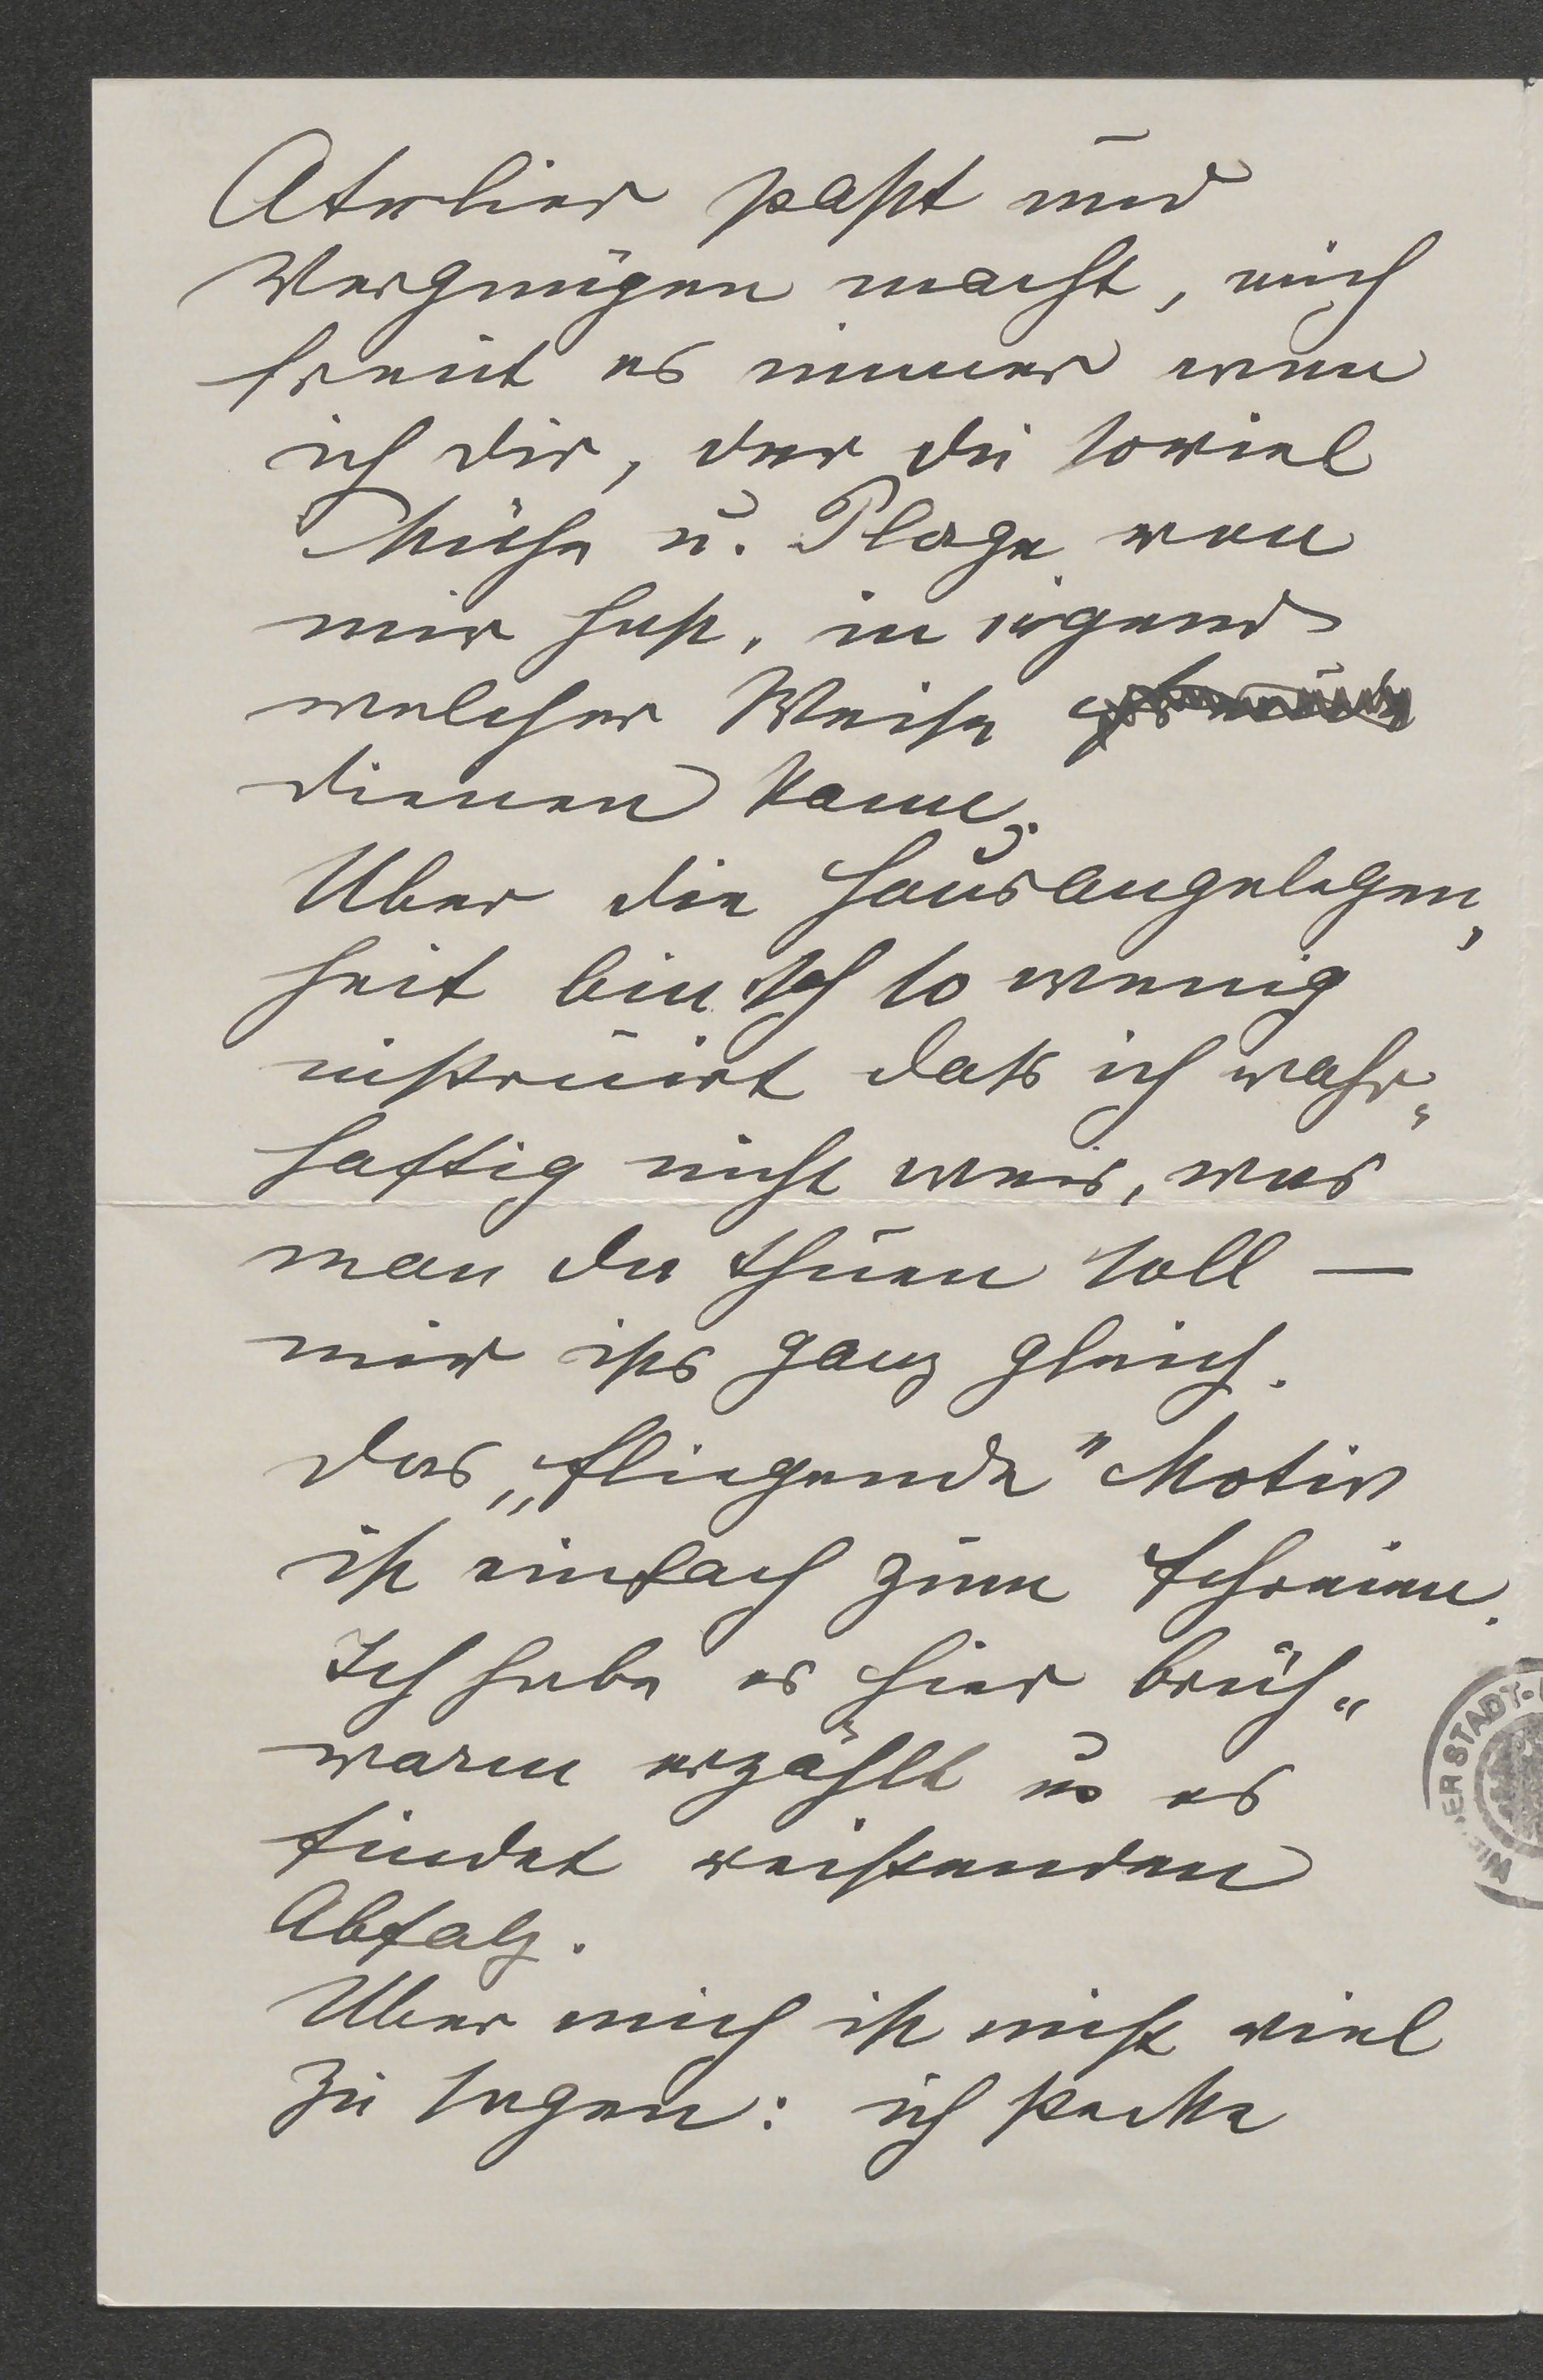 Atelier paßt und
Vergnügen macht, mich
freut es immer wenn
ich dir, der du soviel
Mühe u. Plage von
mir hast, in irgend
welcher Weise
dienen kann.
Über die Hausangelegen„
heit bin ich so wenig
instruirt dass ich wahr„
haftig nicht weis, was
man da thuen soll —
mir ists ganz gleich.
Das „fliegende" Motiv
ist einfach zum Schreien.
Ich habe es hier brüh„
warm erzählt u es
findet reissenden
Absatz.
Über mich ist nicht viel
zu sagen: ich packe